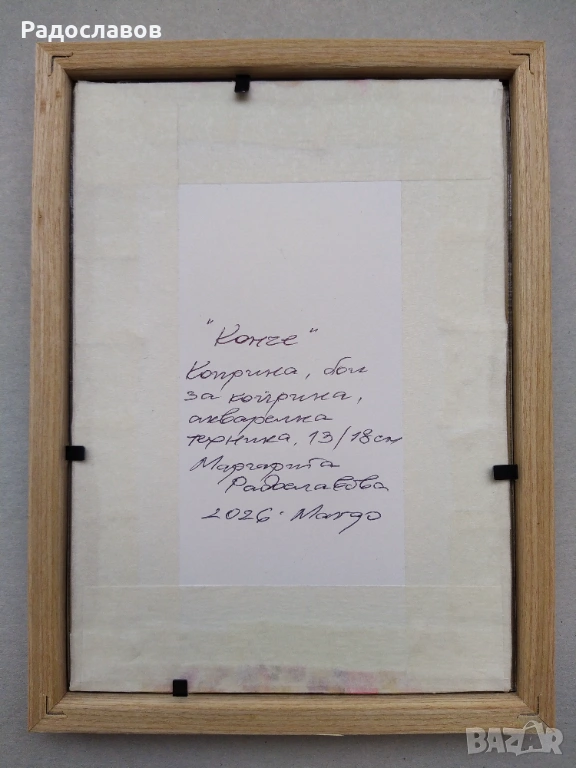 Радославов
"Конче"
Коприна, бои
за коприна,
акварелна
техника, 13/18см
Маргарита
Радославова
2026. Магдо
BAZAR